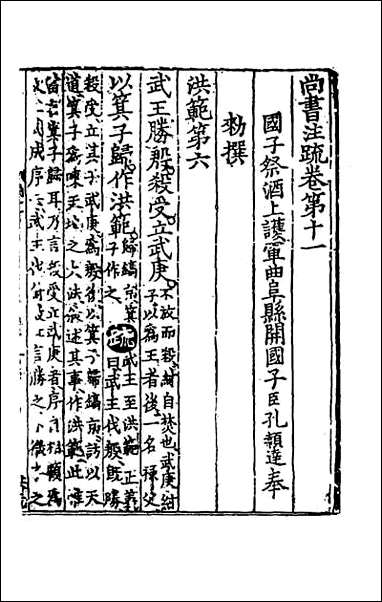 尚書注疏卷第十一
國子祭酒上護軍曲阜縣開國子臣孔穎達奉
勑撰
洪範第六
武王勝殷殺受立武庚不放而殺紂自焚也武庚紂
子以爲王者後一名祿父
以箕子歸作洪範歸鎬京箕
子作之疏武王至洪範 正義
曰武王伐殷旣勝
殺受立其子武庚爲殷後以箕子歸鎬京訪以天
道箕子爲陳天地之大法叙述其事作洪範此惟
當言箕子歸耳乃言殺受立武庚者序自相顧爲
文上武成序云武王伐紂